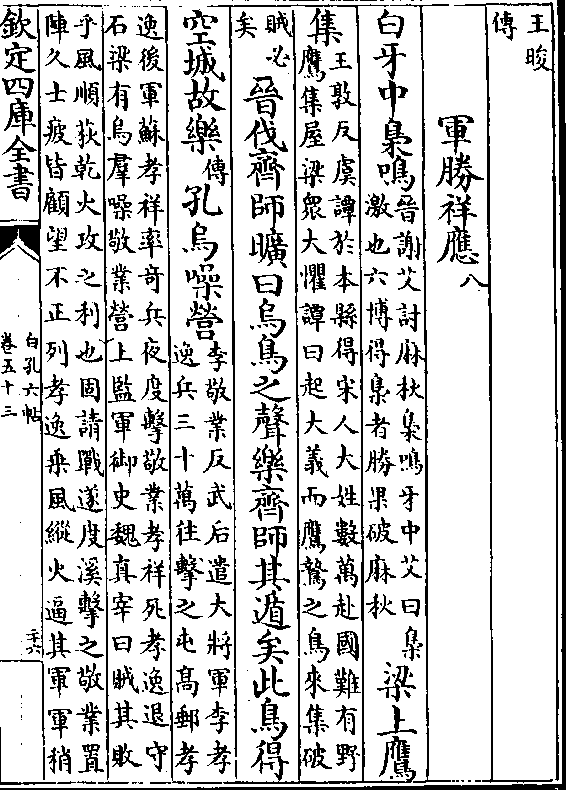 王晙
傳
軍勝祥應八
白牙中梟鳴
晉謝艾討麻秋梟鳴牙中艾曰梟
激也六博得梟者勝果破麻秋
梁上鷹
集
王敦反虞譚於本縣得宋人大姓數萬赴國難有野
鷹集屋梁衆大懼譚曰起大義而鷹鷙之鳥來集破
賊必
矣
晉伐齊師曠曰烏鳥之聲樂齊師其遁矣此鳥得
空城故樂
傳
孔烏噪營
李敬業反武后遣大將軍李孝
逸兵三十萬往擊之屯髙郵孝
逸後軍蘇孝祥率奇兵夜度擊敬業孝祥死孝逸退守
石梁有烏羣噪敬業營上監軍御史魏真宰曰賊其敗
乎風順荻乾火攻之利也固請戰遂度溪擊之敬業置
陣久士疲皆顧望不正列孝逸乗風縱火逼其軍軍稍
欽定四庫全書
白孔六帖
卷五十三
二十六